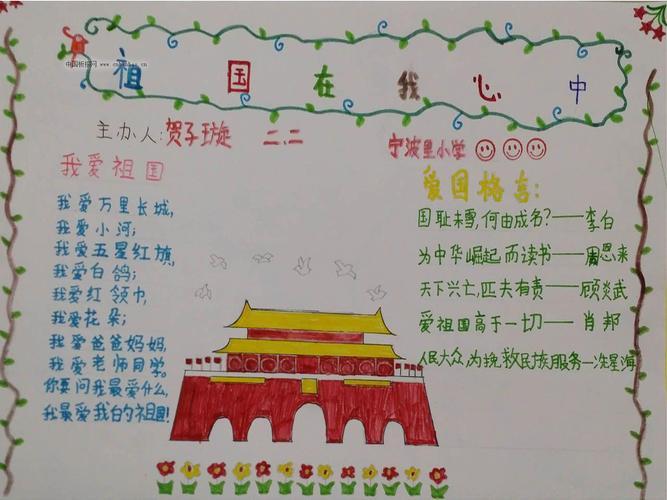 祖国在我心中
主办人:贺子璇 二、二
宁波里小学
我爱祖国
我爱万里长城,
我爱小河;
我爱五星红旗,
我爱白鸽;
我爱红领巾,
我爱花朵;
我爱爸爸妈妈,
我爱老师同学。
你要问我最爱什么,
我最爱我的祖国!
爱国格言:
国耻未雪,何由成名?——李白
为中华崛起而读书——周恩来
天下兴亡,匹夫有责——顾炎武
爱祖国高于一切——肖邦
人民大众,为挽救民族服务—冼星海